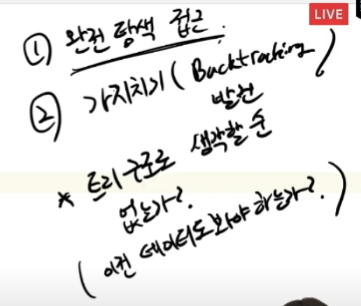 LIVE
① 완전 탐색 접근.
② 가지치기 (Backtracking)
발전
* 트리구조로 생각할 순
없는가?
(이전 데이터도 봐야 하는가?)